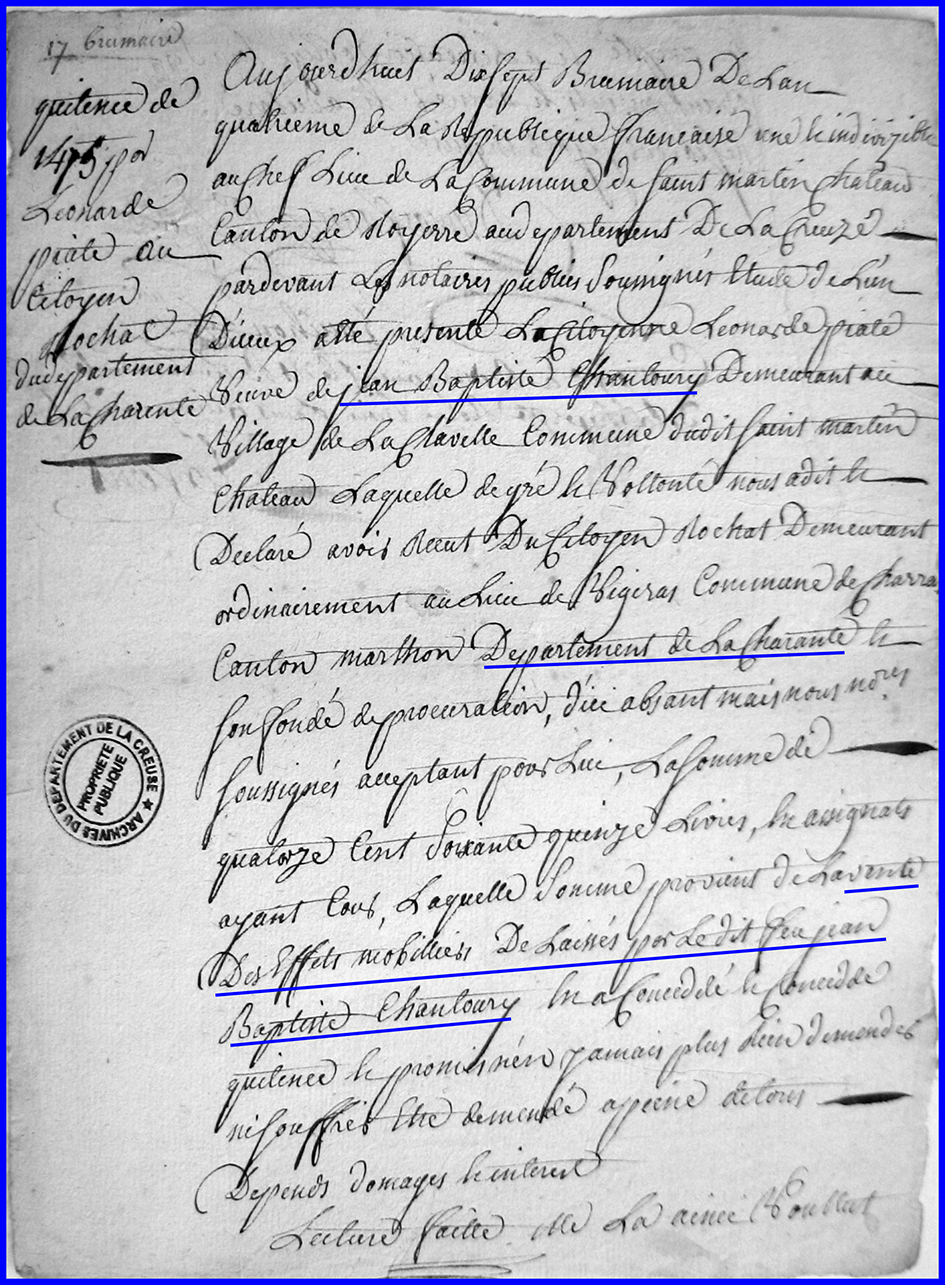 17 brumaire
quitence de
1475 por
Leonarde
piate au
Citoyen
Rochat
dudepartement
de La Charente
Aujourdhuit Dixsept Brumaire De Lan
quatrieme de La Republique francaise une & indivizible
au Chef Lieu de La Commune de saint martin Chateau
Canton de Royerre audepartement De La Creuze
pardevant Les notaires publics soussignés Etude de Lun
Dieux atté presente La Citoyenne Leonarde piate
Veuve de jean Baptiste Chanloury Demeurant au
Village de La Clavelle Commune dudit saint martin
Chateau Laquelle de gré & Vollonté nous adit &
Declaré avois Receut Du Citoyen Rochat Demeurant
ordinairement au Lieu de Vigiras Commune de Charra
Canton marthon Departement de La Charante &
son fondé de procuration, d'ici absant mais nous nores
soussignés acceptant pour Lui, La somme de
quatorze Cent Soixante quinze Livres, En assignats
ayant Cours, Laquelle Somme provient de La vente
Des Effets mobilliers De Laissés por Le dit feu jean
Baptiste Chanloury En a Conceddé & Concedde
quitence & promis nén jamais plus Rien demender
ni souffrir Etre demendé apeine de tous
Depends domages & interest
Lecture faitte Elle La ainsi Voullut
ARCHIVES DU DEPARTEMENT DE LA CREUSE
PROPRIETE
PUBLIQUE